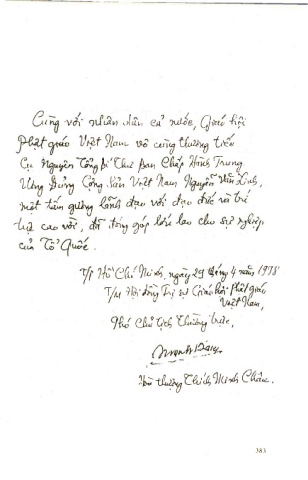 Cùng với nhân dân cả nước, Giáo hội
Phật giáo Việt Nam vô cùng thương tiếc
Cụ Nguyên Tổng Bí Thư Ban Chấp Hành Trung
Ương Đảng Cộng Sản Việt Nam Nguyễn Văn Linh,
một tấm gương lãnh đạo với đạo đức và trí
tuệ cao vời, đã đóng góp lớn lao cho sự nghiệp
của Tổ Quốc.
T/P Hồ Chí Minh, ngày 29 tháng 4 năm 1998
T/M Hội đồng Trị sự Giáo hội Phật giáo
Việt Nam,
Phó Chủ tịch Thường trực,
Hòa thượng Thích Minh Châu.
383